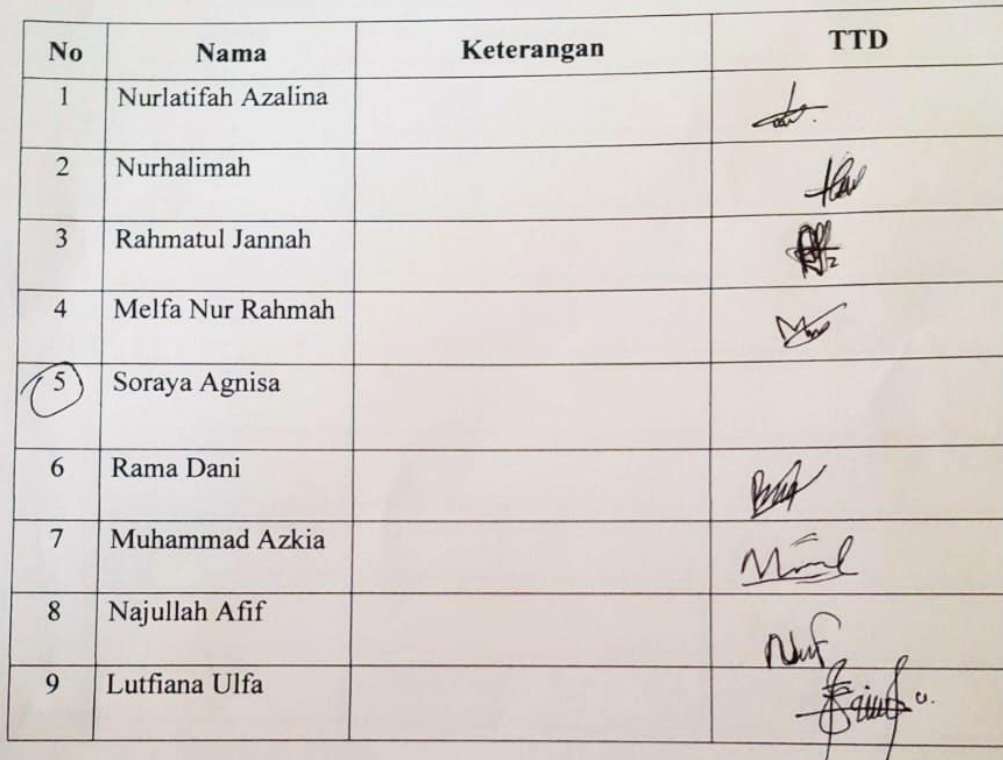 No Nama Keterangan TTD
1 Nurlatifah Azalina
2 Nurhalimah
3 Rahmatul Jannah
4 Melfa Nur Rahmah
5 Soraya Agnisa
6 Rama Dani
7 Muhammad Azkia
8 Najullah Afif
9 Lutfiana Ulfa